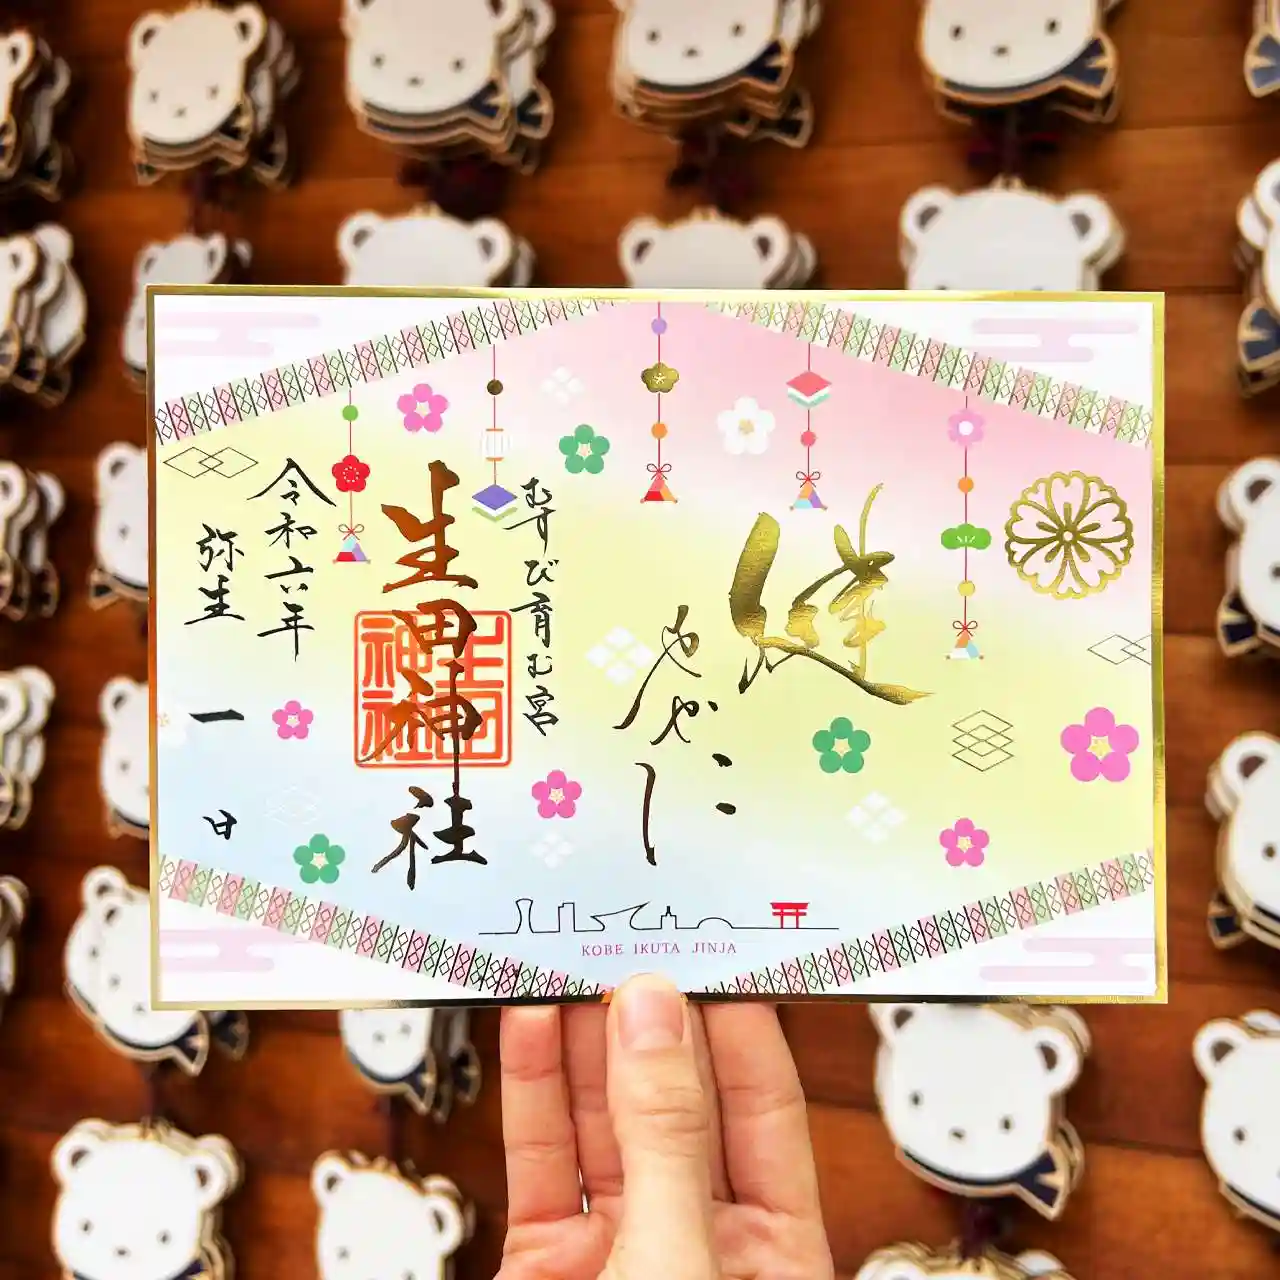 健
すこやかに
むすび育む宮
生田神社
生田神社
令和六年
弥生一日
KOBE IKUTA JINJA